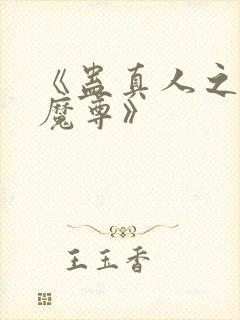 《蛊真人之
魔尊》
王玉香